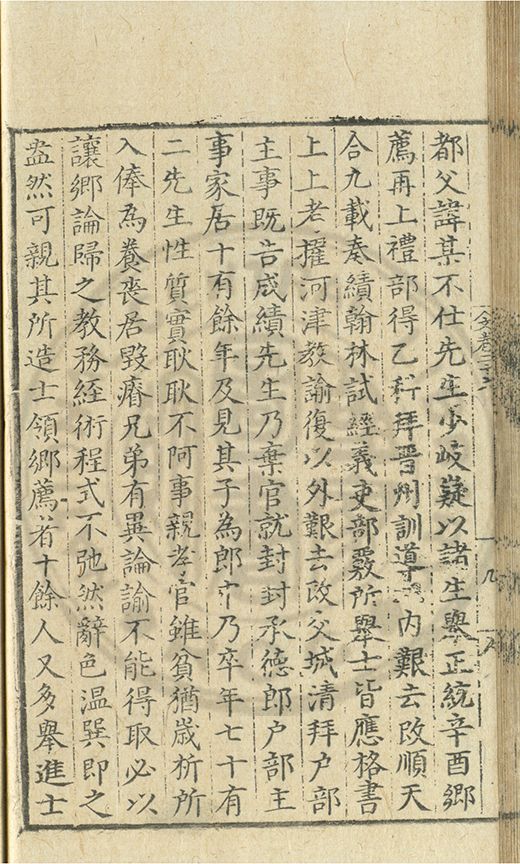 都父諱某不仕先生少岐嶷以諸生舉正統辛酉鄉
薦再上禮部得乙科拜晉州訓導內艱去改順天
合九載奏績翰林試經義吏部覈所舉士皆應格書
上上老擢河津教諭復以外艱去改交城清拜户部
主事既告成績先生乃棄官就封封承德郎户部主
事家居十有餘年及見其子為郎中乃卒年七十有
二先生性質實耿耿不阿事親孝官雖貧猶歲析所
入俸為養喪居毀瘠兄弟有異論諭不能得取必以
讓鄉論歸之教務經術程式不弛然辭色温巽即之
盎然可親其所造士領鄉薦者十餘人又多舉進士